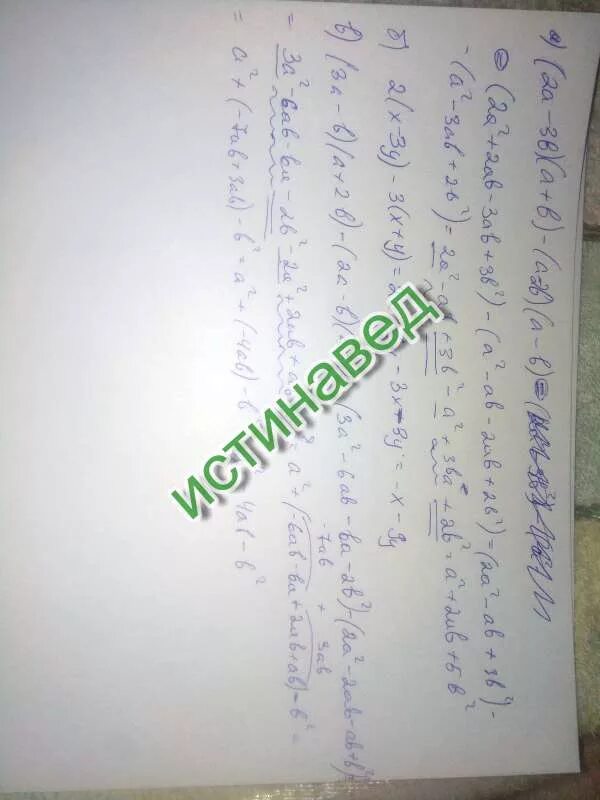 а) (2a-3b)(a+b)-(a-2b)(a-b)=
=(2a²+2ab-3ab+3b²)-(a²-ab-2ab+2b²)=(2a²-ab+3b²)-
-(a²-3ab+2b²)=2a²-ab+3b²-a²+3ba+2b²=a²+2ab+5b²
б) 2(x-3y)-3(x+y)= -3x-3y=-x-9y
в) (3a-b)(a+2b)-(2a-b)( (3a²-6ab-ba-2b²)-(2a²-2ab-ab+b²)
-7ab + 3ab
=3a²-6ab-ba-2b²-2a²+2ab+a =a²+(-6ab-ba+2ab+ab)-b²=
=a²+(-7ab+3ab)-b²=a²+(-4ab)-b 4ab-b²
истинавед